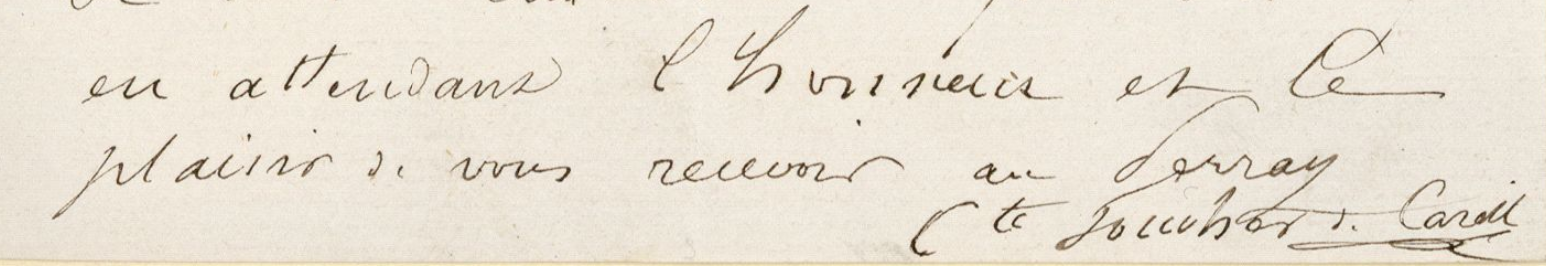 en attendant l'honneur et le
plaisir de vous recevoir au Perray
Cte Foucher de Careil